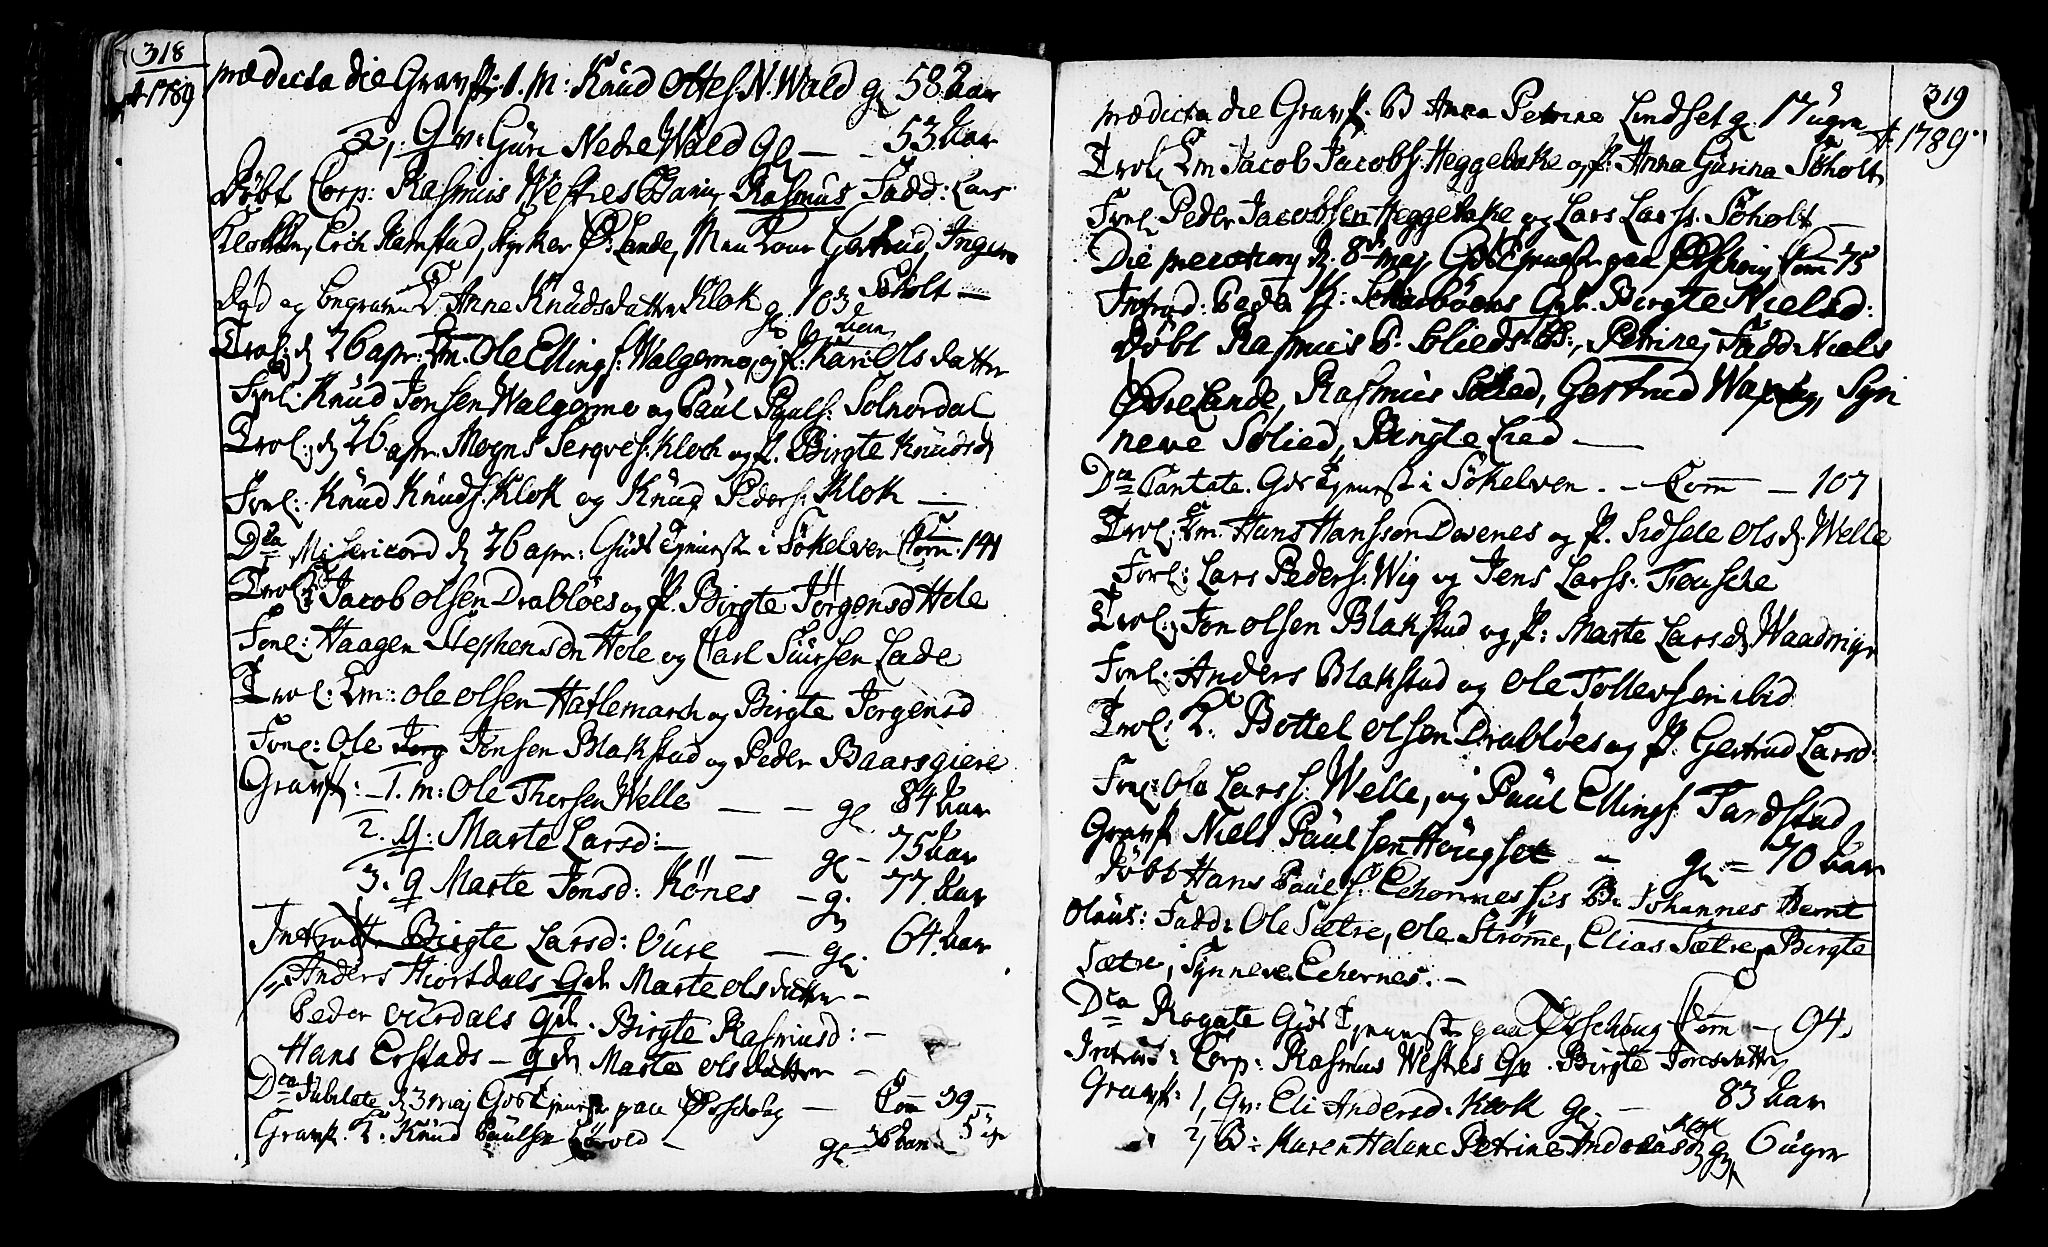 318
A 1789
prædicta die Gravf: 1. M: Knud Ottes: N. Wald gl 58 Aar
2, Qv: Guri Nedre Wald gl — 53 Aar
Døbt Corp: Rasmus Westres Barn, Rasmus Fadd: Lars
Klokk, Erich Hamstad, Ø: Lande, Gertrud, Ingerv
Søholt —
død og begraven Anne Knudsdatter Klok gl 103 Aar
Trol: d 26 apr: Em. Ole Ellings: Walgermo, og P. Kari Olsdatter
Forl: Knud Jonsen Walgermo og Paul Pauls: Solnørdal
Trol: d 26 apr. Mogns Serqves: Kloch og P. Birgte Knudsd
Forl: Knud Knuds: Klok og Knud Peders: Klok —
Dca Misericord d 26 apr: Guds Tjenest i Søkelven Com. 141
Trol: Jacob Olsen Drabløes og P. Birgte Jørgensd Hole
Forl: Haagen Stephensen Hole og Carl Siursen Lade
Trol: Em: Ole Olsen Hatlemarch og Birgte Jørgensd
Forl: Ole Jorg Jonsen Blakstad og Peder Baarsgiere
Gravf: 1. m: Ole Thorsen Welle — — gl 84 Aar
2. Q: Marte Larsd: — — gl – 75 Aar
3. Q Marte Jonsd: Rönes – g. 77 Aar
Birgte Larsd: Vure — gl. 64 Aar
Anders Hiortdals Qv Marte Olsdatter –
Peder Vurdals Qv. Birgte Rasmusd: –
Hans Erstads – Qv Marte Olsdatter –
Dca Jubilate d 3 maj Gds Tjenest paa Ørschoug — Com 39 –
Gravf. Knud Paulsen — gl
319
A 1789
prædicta die Gravf. B Anna Petrine Lindset g. 17 ugr
Trol: Em Jacob Jacobs: Heggebake og P: Anna Gurina Søholt
Forl Peder Jacobsen Heggebake og Lars Larss: Søholt —
Die d. 8 maj Gds Tjenest paa Ørschoug Com 75
Introd: Peder Qv. Birgte Nielsd:
Døbt Rasmus P. Solieds B:, Petrine, Fadd Niels
Øvre Lande, Rasmus Solied, Gertrud Syn
neve Solied, Birgte Lied —
Dca Cantate. Gds Tjenest i Søkelven. – Com — 107
Trol: Em. Hans Hansson Davenes og P. Sidsele Olsd. Welle
Forl: Lars Peders: Wig og Jens Larss: Trousche
Trol: Jon Olsen Blakstad og P: Marte Larsd Waadmyr
Forl: Anders Blakstad og Ole Tollevsen ibid
Trol: Bottel Olsen Drabløes og P. Gertrud Larsd:
Forl: Ole Larss: Welle, og Paul Ellings: Tandstad
Gravf Niels Paulsen Hougset – gl = 70 Aar
Døbt Hans Pauls: Echornes sis B: Johannes Bernt
Olaus: Fadd: Ole Sætre, Ole Strømme, Elias Sætre, Birgte
Sætre, Synneve Echornes. –
Dca Rogate Gds Tjenest paa Ørschoug Com – 94.
Introd: Corp: Rasmus Westres Qv. Birgte Joresdatter
Gravf: 1, Qv: Eli Andersd: Klok gl. — 83 Aar
Klok
2, B: Karen Helene Petrine Andreasd gl 6 ugr